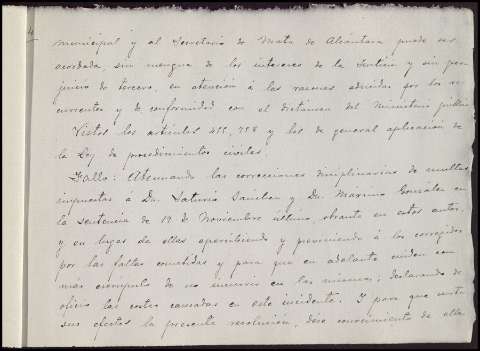 municipal y al Secretario de Mata de Alcántara puede ser
acordada, sin mengua de los intereses de la Justicia y sin per-
juicio de tercero, en atención á las razones aducidas por los re-
currentes y de conformidad con el dictamen del Ministerio público
Vistos los artículos 455, 758 y los de general aplicación de
la Ley de procedimientos civiles.
Fallo: Atenuando las correcciones disciplinarias de multas
impuestas á Dn. Saturio Sánchez y Dn. Máximo González en
la sentencia de 19 de Noviembre último, obrante en estos autos,
y en lugar de ellas apercibiendo y previniendo á los corregidos
por las faltas cometidas y para que en adelante cuiden con
más escrúpulo de no incurrir en las mismas; declarando de
oficio las costas causadas en este incidente. Y para que surta
sus efectos la presente resolución, dése conocimiento de ella